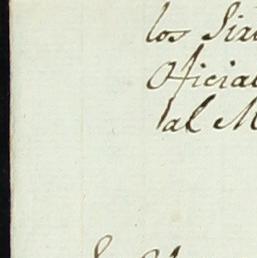 los Sir
Oficia
al M